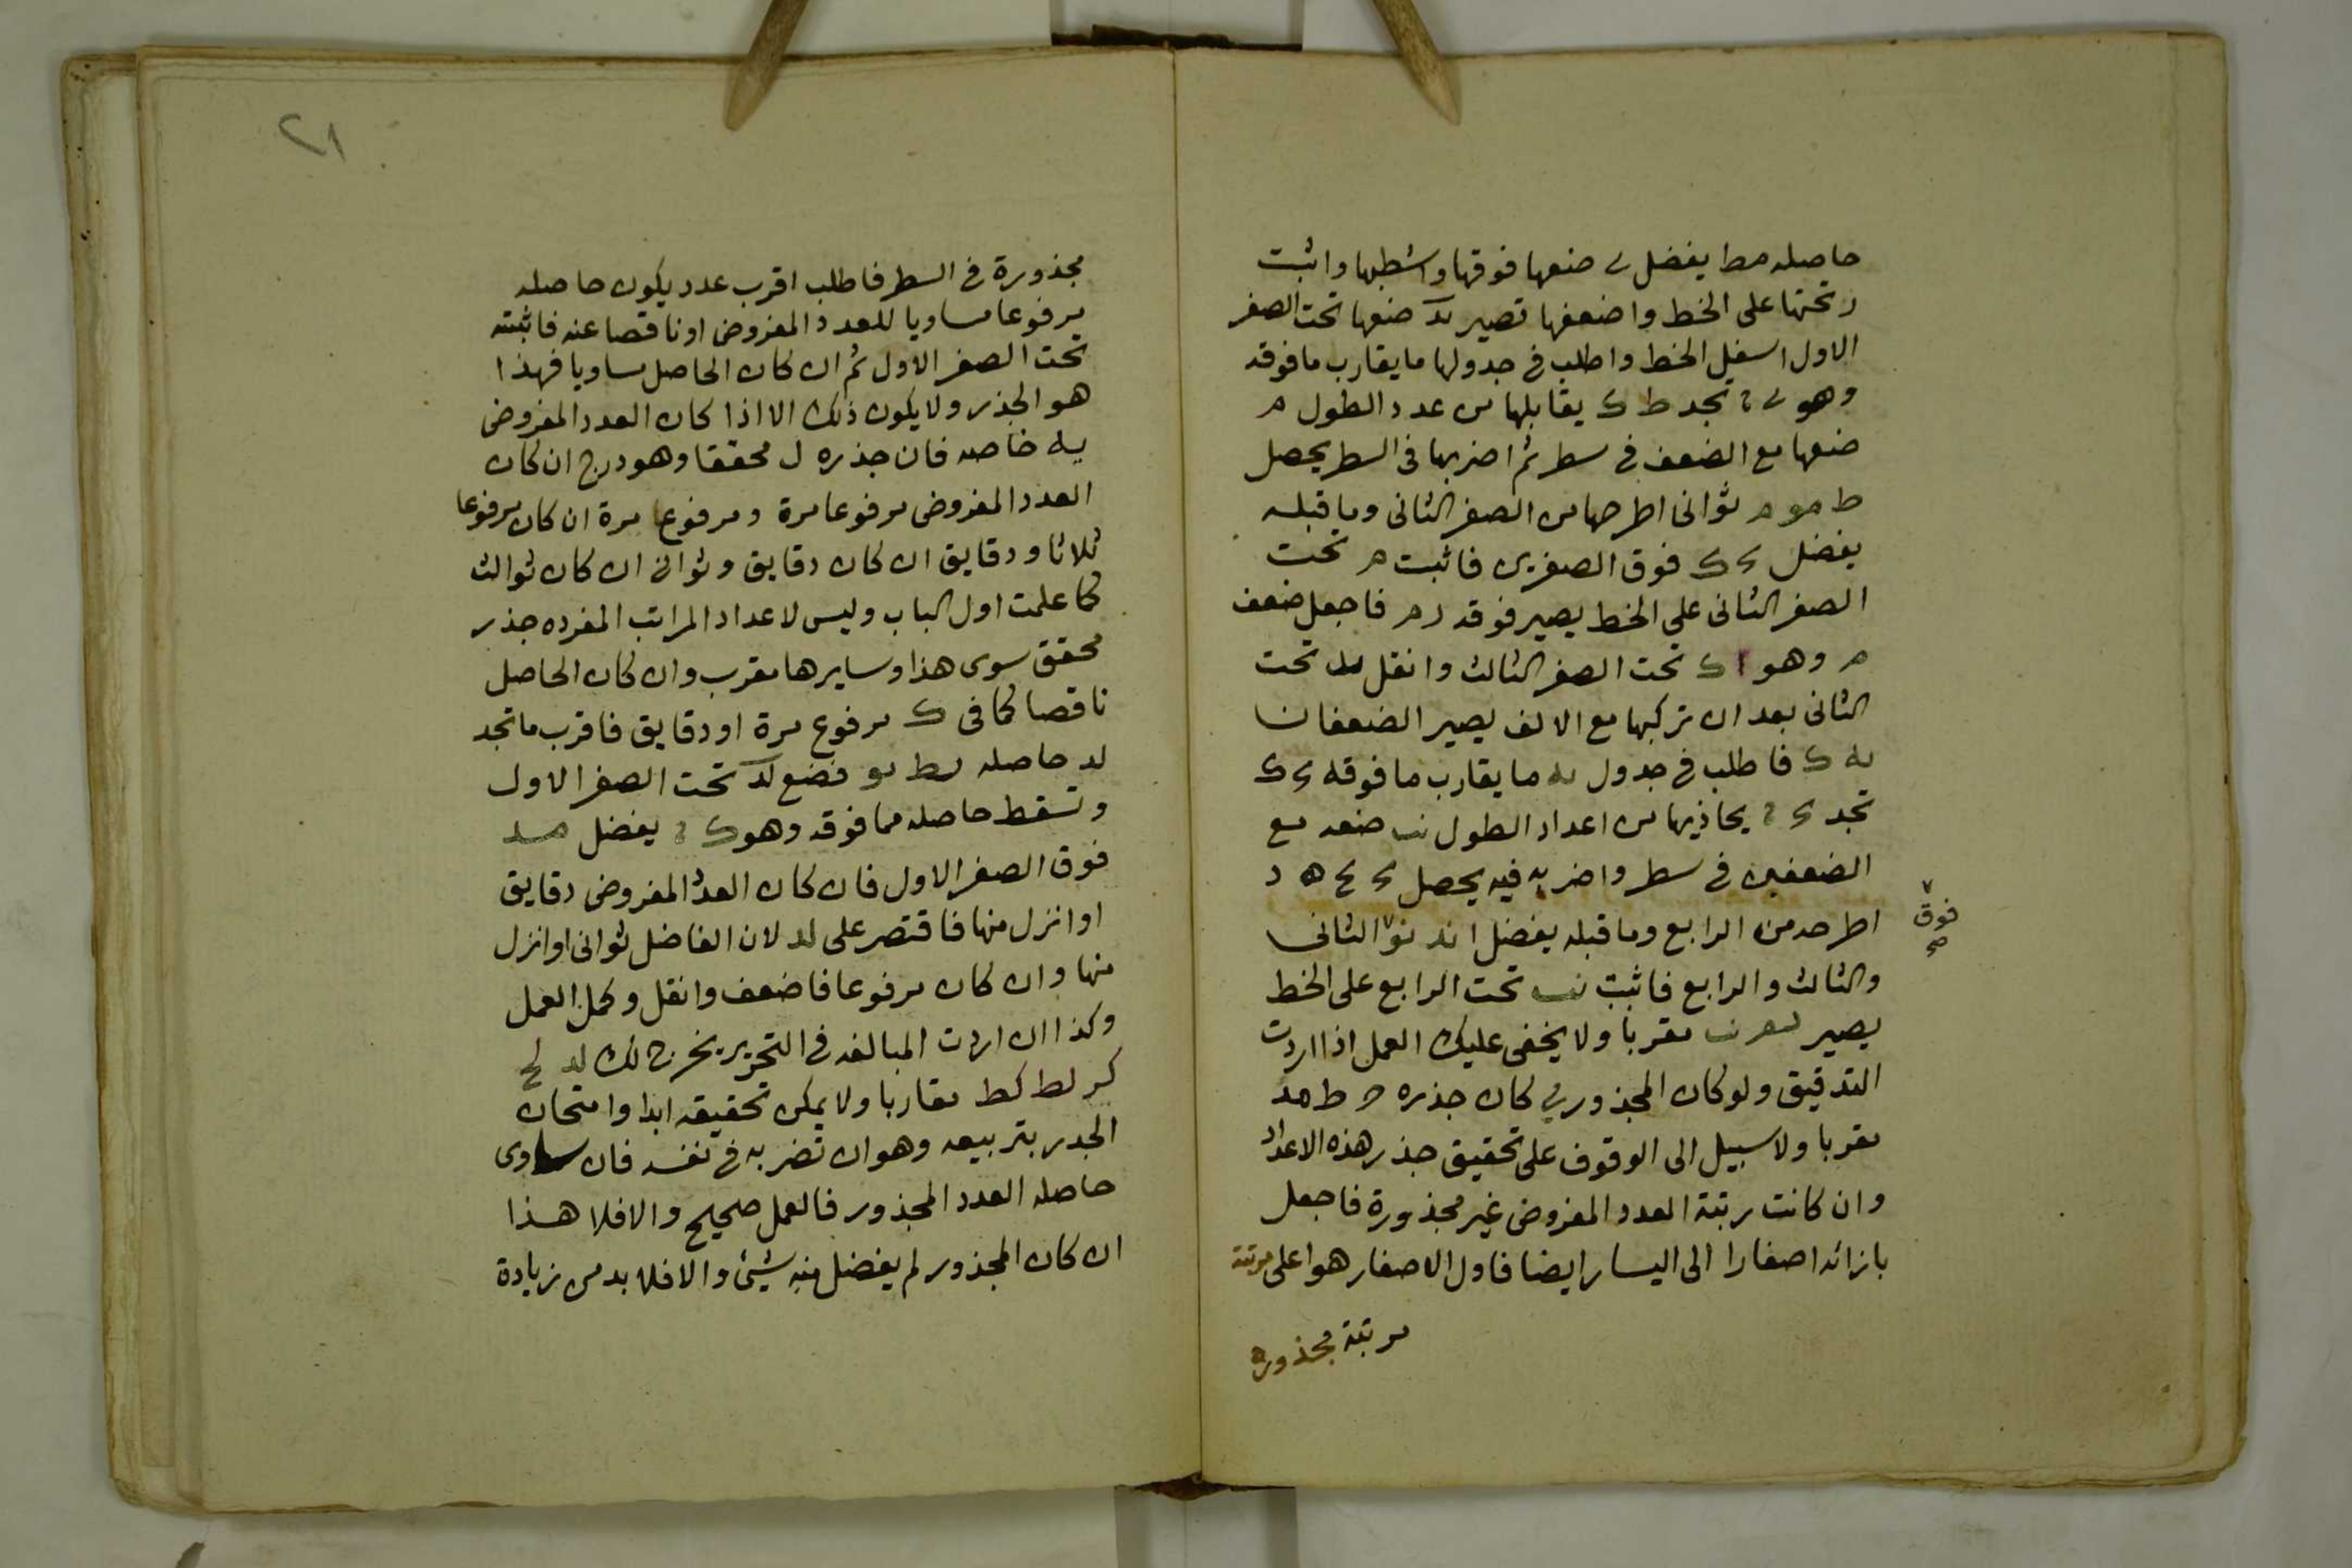 حاصله مط يفضل ى ضعها فوقها واشطبها واثبت
ر تحتها على الخط واضعفها تصير يد ضعها تحت الصفر
الاول اسفل الخط واطلب فى جدولها ما يقارب ما فوقه
وهو تجد ط ك يقابلها من عدد الطول م
ضعها مع الضعف فى سطر ثم اضربها فى السطر يحصل
ط مو م ثوانى اطرحها من الصفر الثانى وما قبله
يفضل ك فوق الصفرين فاثبت م تحت
الصفر الثانى على الخط يصير فوقه ر م فاجعل ضعف
م وهو ا ك تحت الصفر الثالث وانقل يد تحت
الثانى بعد ان تركبها مع الالف يصير الضعفان
يه ك فاطلب فى جدول يه ما يقارب ما فوقه
تجد يحاذيها من اعداد الطول نب ضعه مع
الضعفين فى سطر واضربه فيه يحصل
اطرحه من الرابع وما قبله يفضل ا ند نو الثانى
فوق صح
والثالث والرابع فاثبت نب تحت الرابع على الخط
يصير مقربا ولا يخفى عليك العمل اذا اردت
التدقيق ولو كان المجذور كان جذره ط مد
مقربا ولا سبيل الى الوقوف على تحقيق جذر هذه الاعداد
وان كانت رتبة العدد المفروض غير مجذورة فاجعل
بازائه اصفارا الى اليسار ايضا فاول الاصفار هو اعلى مرتبة
مرتبة مجذورة
٢١
مجذورة فى السطر فاطلب اقرب عدد يكون حاصله
مرفوعا مساويا للعدد المفروض او ناقصا عنه فاثبته
تحت الصفر الاول ثم ان كان الحاصل مساويا فهذا
هو الجذر ولا يكون ذلك الا اذا كان العدد المفروض
يه خاصه فان جذره ل محققا وهو درج ان كان
العدد المفروض مرفوعا مرة ومرفوعا مرة ان كان مرفوعا
ثلاثا ودقايق ان كان دقايق وثوانى ان كان ثوالث
كما علمت اول الباب وليس لاعداد المراتب المفرده جذر
محقق سوى هذا وسايرها مقرب وان كان الحاصل
ناقصا كما فى ك مرفوع مرة او دقايق فاقرب ما تجد
لد حاصله يط يو فضع لد تحت الصفر الاول
وتسقط حاصله مما فوقه وهو ك يفضل مد
فوق الصفر الاول فان كان العدد المفروض دقايق
او انزل منها فاقتصر على لد لان الفاضل ثوانى او انزل
منها وان كان مرفوعا فاضعف وانقل وكمل العمل
وكذا ان اردت المبالغه فى التحرير يخرج لك لد لح
كر لط كط مقاربا ولا يمكن تحقيقه ابدا وامتحان
الجدر بتربيعه وهو ان تضربه فى نفسه فان ساوى
حاصله العدد المجذور فالعمل صحيح والا فلا هذا
ان كان المجذور لم يفضل منه شيئ والا فلا بد من زيادة